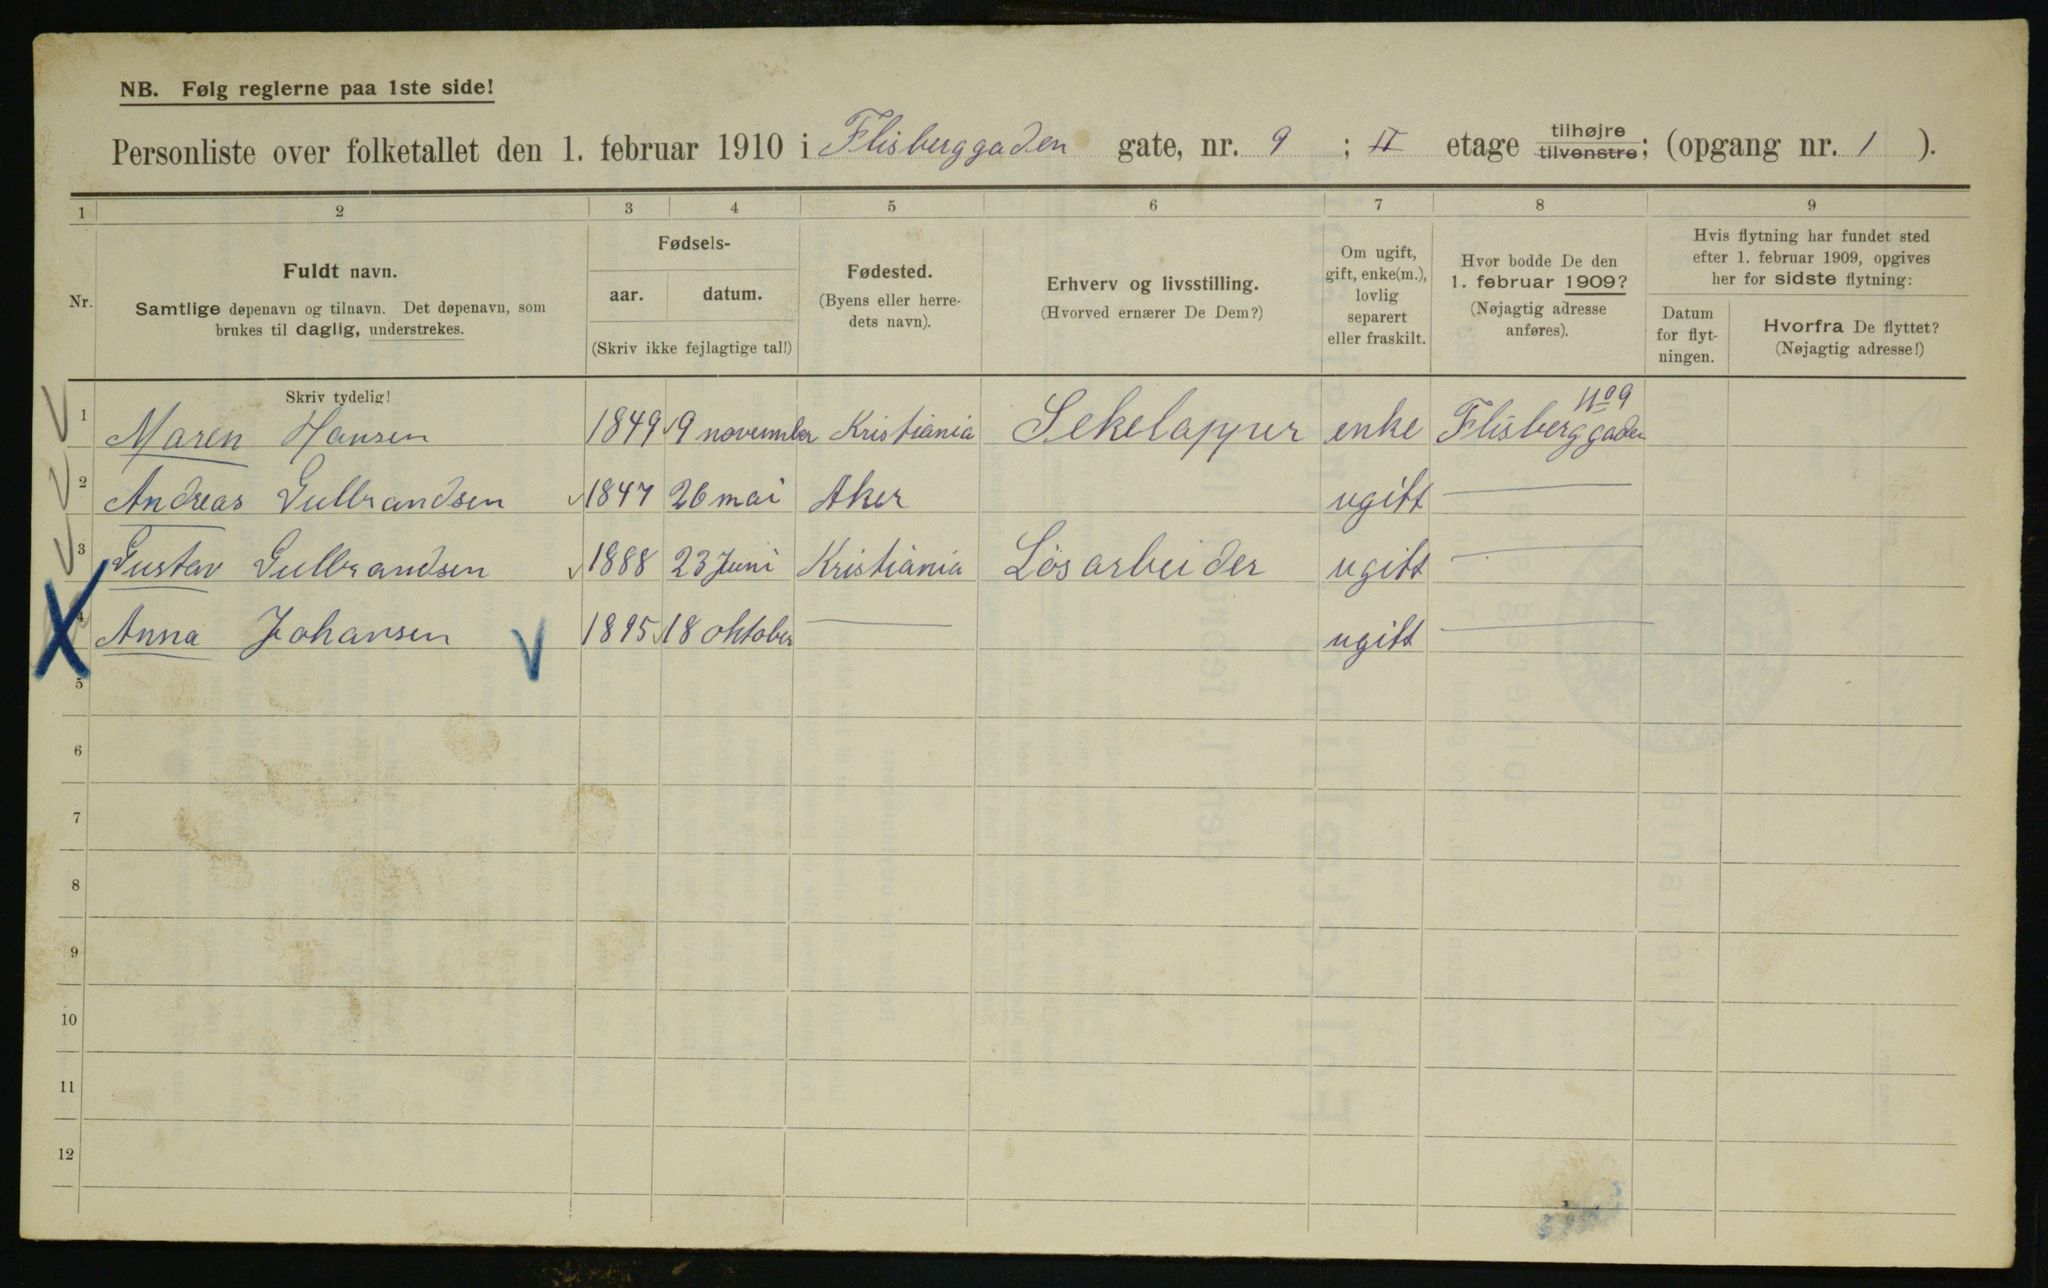 NB. Følg reglerne paa 1ste side!
Personliste over folketallet den 1. februar 1910 i Flisberggaden gate, nr. 9 ; II etage tilhøjre tilvenstre; (opgang nr. 1 ).
1 2 3 4 5 6 7 8 9
Nr.
Fuldt navn.
Samtlige døpenavn og tilnavn. Det døpenavn, som
brukes til daglig, understrekes.
Skriv tydelig!
Fødsels-
aar. datum.
(Skriv ikke fejlagtige tal!)
Fødested.
(Byens eller herre-
dets navn).
Erhverv og livsstilling.
(Hvorved ernærer De Dem?)
Om ugift,
gift, enke(m.),
lovlig
separert
eller fraskilt.
Hvor bodde De den
1. februar 1909?
(Nøjagtig adresse
anføres).
Hvis flytning har fundet sted
efter 1. februar 1909, opgives
her for sidste flytning:
Datum
for flyt-
ningen.
Hvorfra De flyttet?
(Nøjagtig adresse!)
1 Maren Hansen 1849 9 november Kristiania Sekelapper enke Flisberggaden No 9
2 Andreas Gulbrandsen 1847 26 mai Aker ugift
3 Gustav Gulbrandsen 1888 23 Juni Kristiania Løsarbeider ugift
4 Anna Johansen 1895 18 oktober ugift
5
6
7
8
9
10
11
12